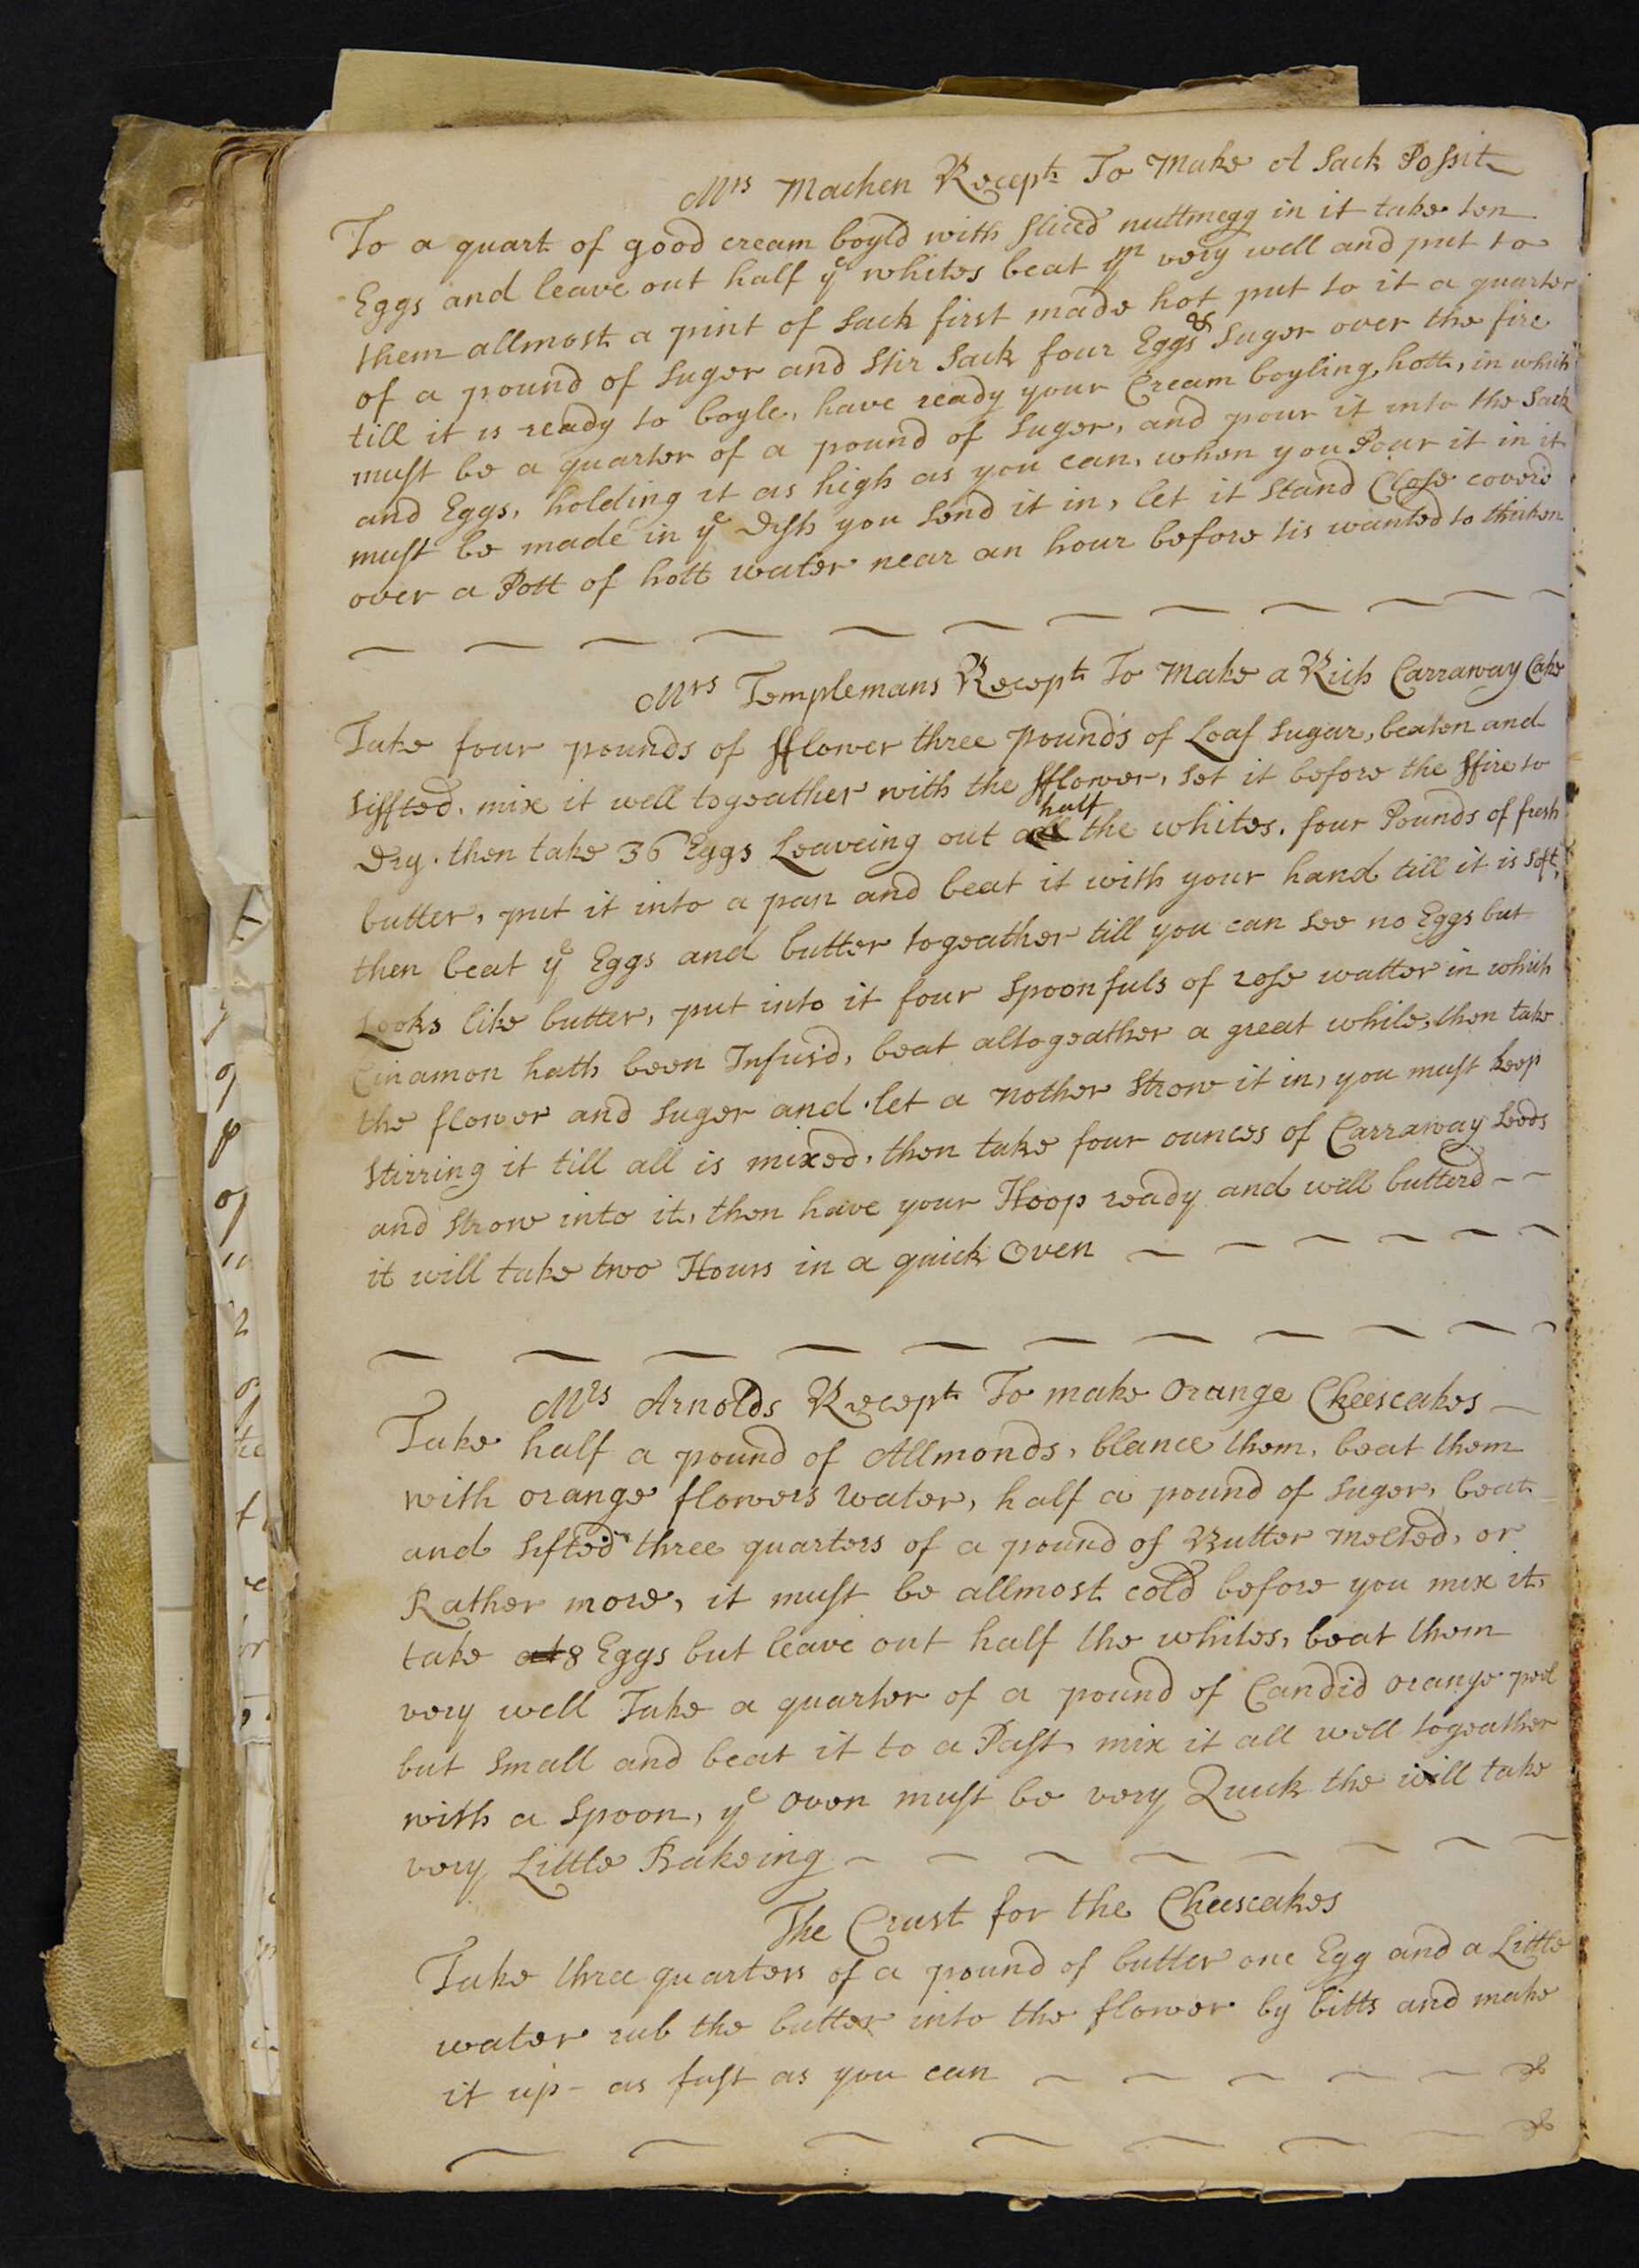 Mrs Machen Recept To Make A Sack Possit
To a quart of good cream boyld with sliced nuttmegg in it take ten
Eggs and leave out half ye whites beat ym very well and put to
them allmost a pint of Sack first made hot put to it a quarter
of a pound of Suger and stir Sack four Eggs & Suger over the fire
till it is ready to boyle, have ready your Cream boyling hott, in which
must be a quarter of a pound of Suger, and pour it into the Sack
and Eggs, holding it as high as you can, when you Pour it in it
must be made in ye Dish you send it in, let it Stand Close coverd
over a Pott of hott water near an hour before tis wanted to thicken
Mrs Templemans Recept To Make a Rich Carraway Cake
Take four pounds of fflower three pounds of Loaf Sugar, beaten and
siffted. mix it well togeather with the fflower, set it before the ffire to
Dry. then take 36 Eggs Leaveing out all half the whites. four Pounds of fresh
butter, put it into a pan and beat it with your hand till it is soft,
then beat ye Eggs and butter togeather till you can see no Eggs but
Looks like butter, put into it four spoonfuls of rose watter in which
Cinamon hath been Infus'd, beat altogeather a great while, then take
the flower and Suger and let a nother Strow it in, you must keep
Stirring it till all is mixed, then take four ounces of Carraway Seeds
and Strow into it, then have your Hoop ready and well butterd - -
it will take two Hours in a quick Oven
Mrs Arnolds Recept To make Orange Cheescakes
Take half a pound of Allmonds, blance them, beat them
with orange flowers water, half a pound of Suger, beat
and sifted three quarters of a pound of Butter melted, or
Rather more, it must be allmost cold before you mix it,
take at 8 Eggs but leave out half the whites, beat them
very well Take a quarter of a pound of Candid orange peel
but small and beat it to a Past, mix it all well togeather
with a Spoon, ye oven must be very Quick the will take
very Little Bakeing
The Crust for the Cheescakes
Take three quarters of a pound of butter one Egg and a Little
water rub the butter into the flower by bitts and make
it up - as fast as you can